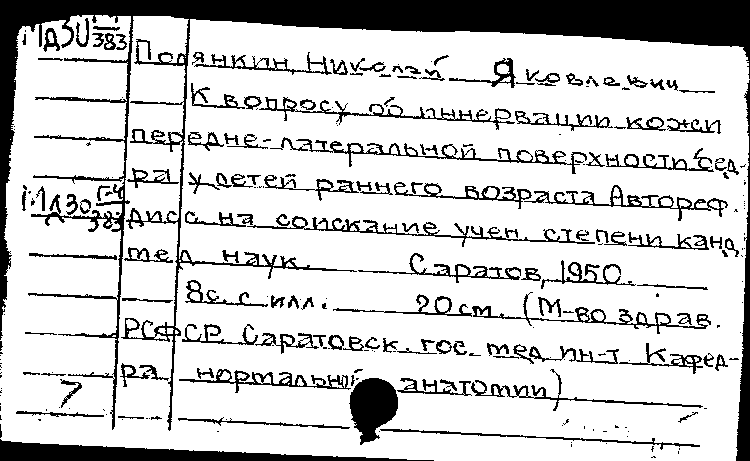 Мд30 Г-1/383
Полянкин, Николай Яковлевич
К вопросу об иннервации кожи
передне-латеральной поверхности бед-
ра у детей раннего возраста Автореф.
Мд30 Г-4/383 дисс. на соискание учен. степени канд.
мед. наук. Саратов, 1950.
8с. с илл. 20 см. (М-во здрав.
РСФСР. Саратовск. гос. мед. ин-т Кафед-
ра нормальной анатомии)
7